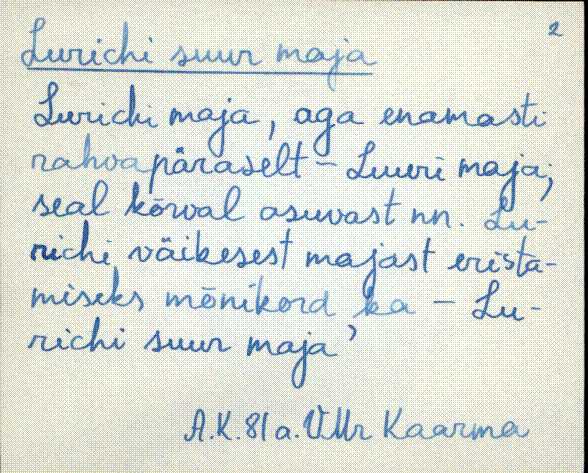 2
Lurichi suur maja
Lurichi maja, aga enamasti
rahvapäraselt – Luuri maja;
seal kõrval asuvast nn. Lu-
richi väikesest majast erista-
miseks mõnikord ka – Lu-
richi suur maja’
A.K. 81 a. VMr Kaarma